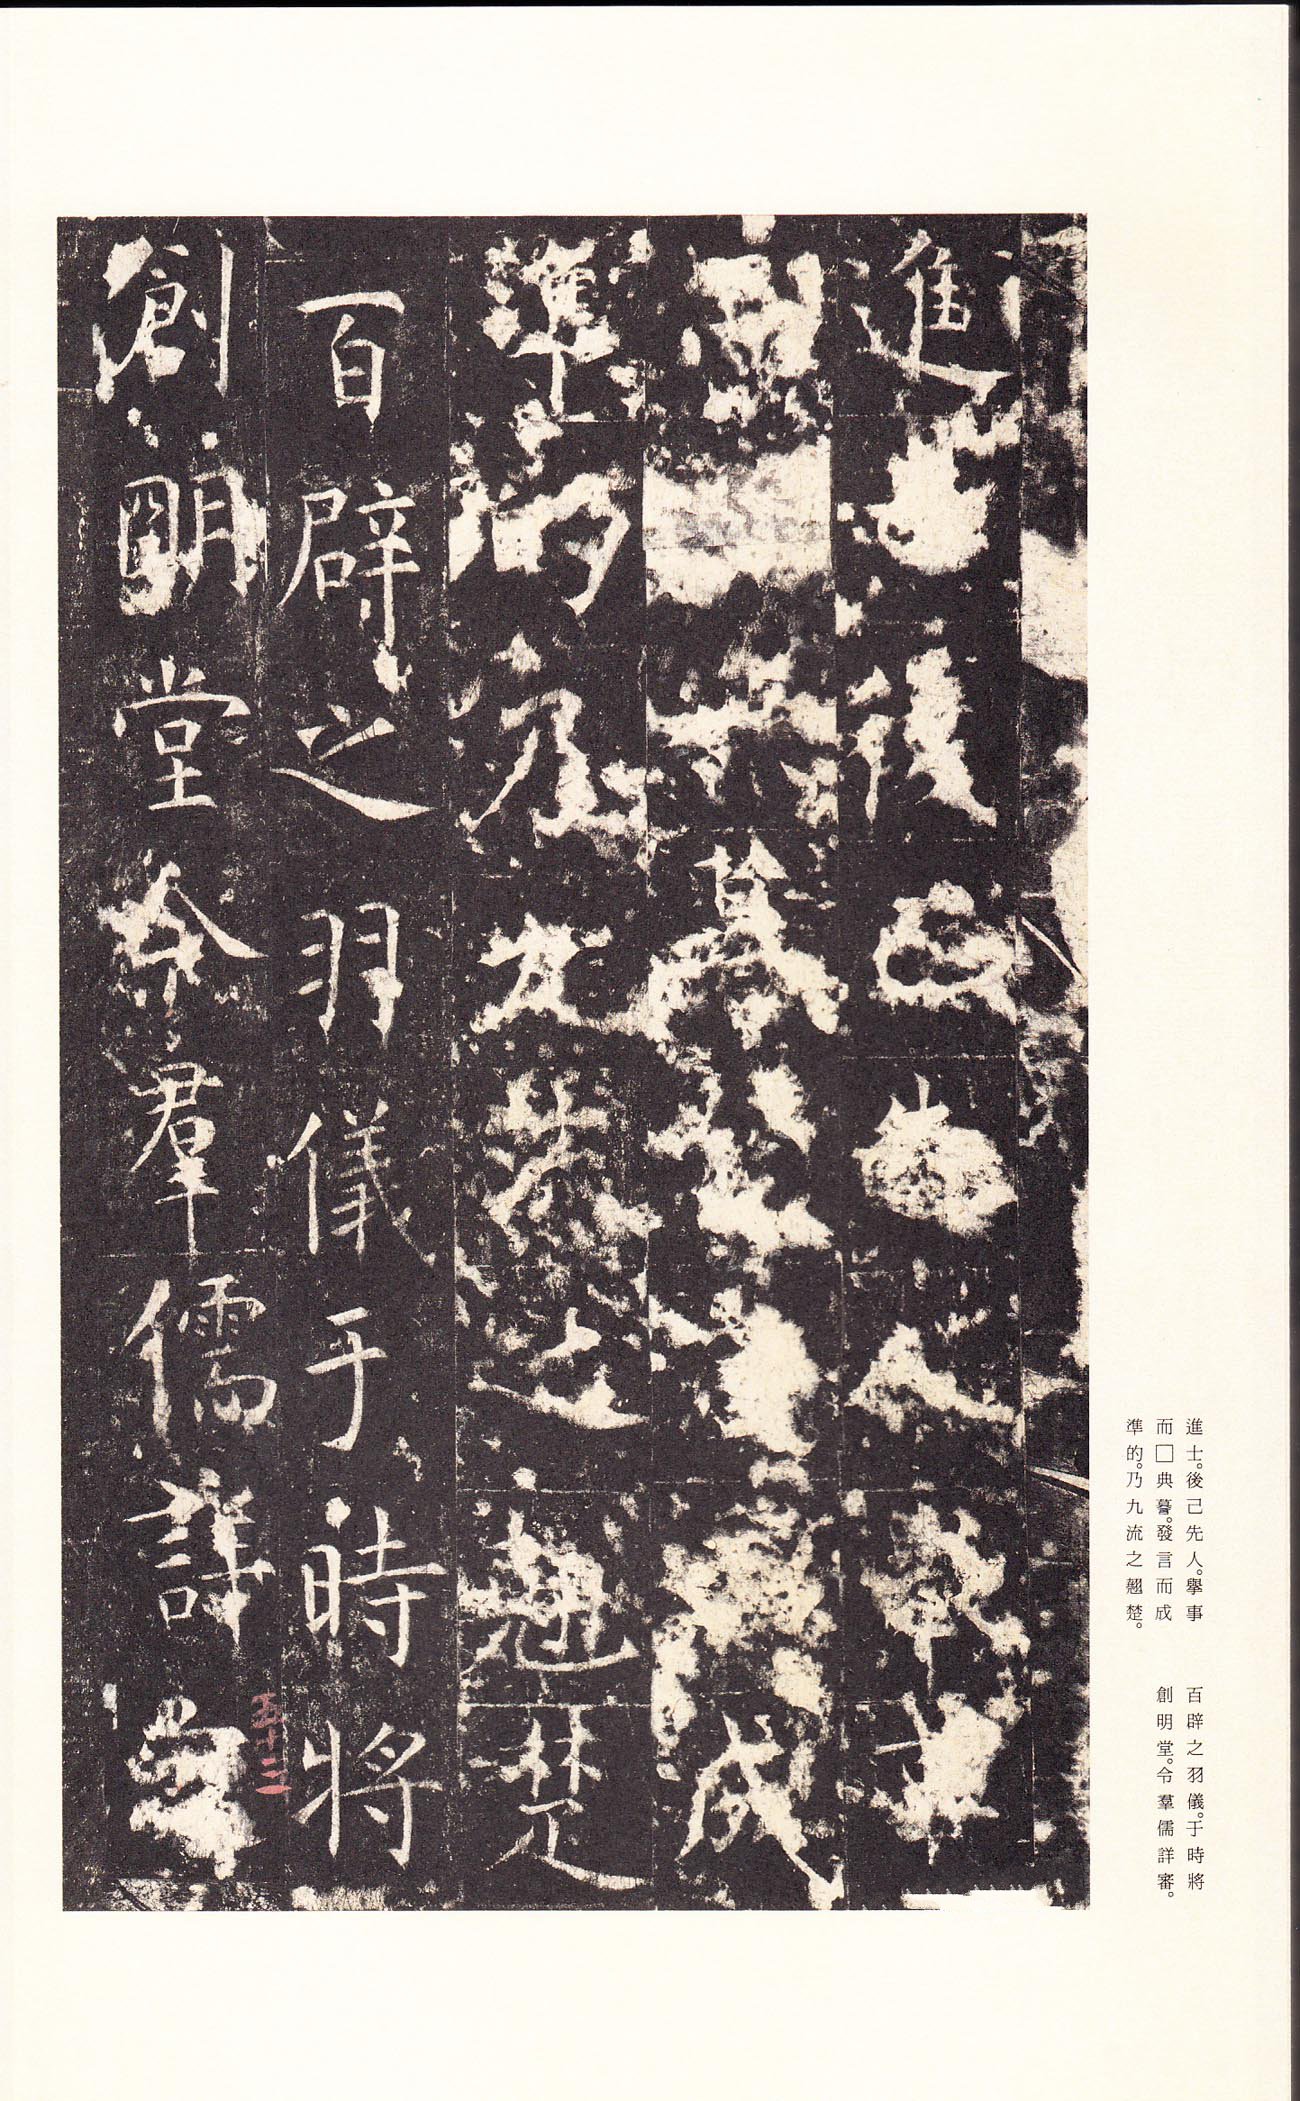 進士後己先人舉事
而□典謩發言而成
準的乃九流之翹楚
百辟之羽儀于時將
創明堂令羣儒詳審
五十三
進士。後己先人。舉事
而□典謩。發言而成
準的。乃九流之翹楚。
百辟之羽儀。于時將
創明堂。令羣儒詳審。